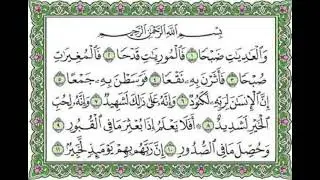 بِسْمِ اللَّهِ الرَّحْمَٰنِ الرَّحِيمِ
وَالْعَادِيَاتِ ضَبْحًا ١ فَالْمُورِيَاتِ قَدْحًا ٢ فَالْمُغِيرَاتِ
صُبْحًا ٣ فَأَثَرْنَ بِهِ نَقْعًا ٤ فَوَسَطْنَ بِهِ جَمْعًا ٥
إِنَّ الْإِنسَانَ لِرَبِّهِ لَكَنُودٌ ٦ وَإِنَّهُ عَلَىٰ ذَٰلِكَ لَشَهِيدٌ ٧ وَإِنَّهُ لِحُبِّ
الْخَيْرِ لَشَدِيدٌ ٨ أَفَلَا يَعْلَمُ إِذَا بُعْثِرَ مَا فِي الْقُبُورِ ٩
وَحُصِّلَ مَا فِي الصُّدُورِ ١٠ إِنَّ رَبَّهُم بِهِمْ يَوْمَئِذٍ لَّخَبِيرٌ ١١